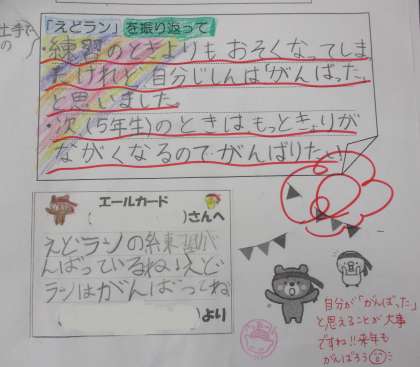 土手で
の
「えどラン」を振り返って
・練習のときよりもおそくなってしま
たけれど、自分じしんは「がんばった」
と思いました。
・次(5年生)のときは、もっときょりが
ながくなるのでがんばりたい!
エールカード
(　　　　)さんへ
えどランの練習が
んばっているね!えど
ランはがんばってね
(　　　　)より
自分が「がんばった」
と思えることが大事
ですね!!来年も
がんばろう